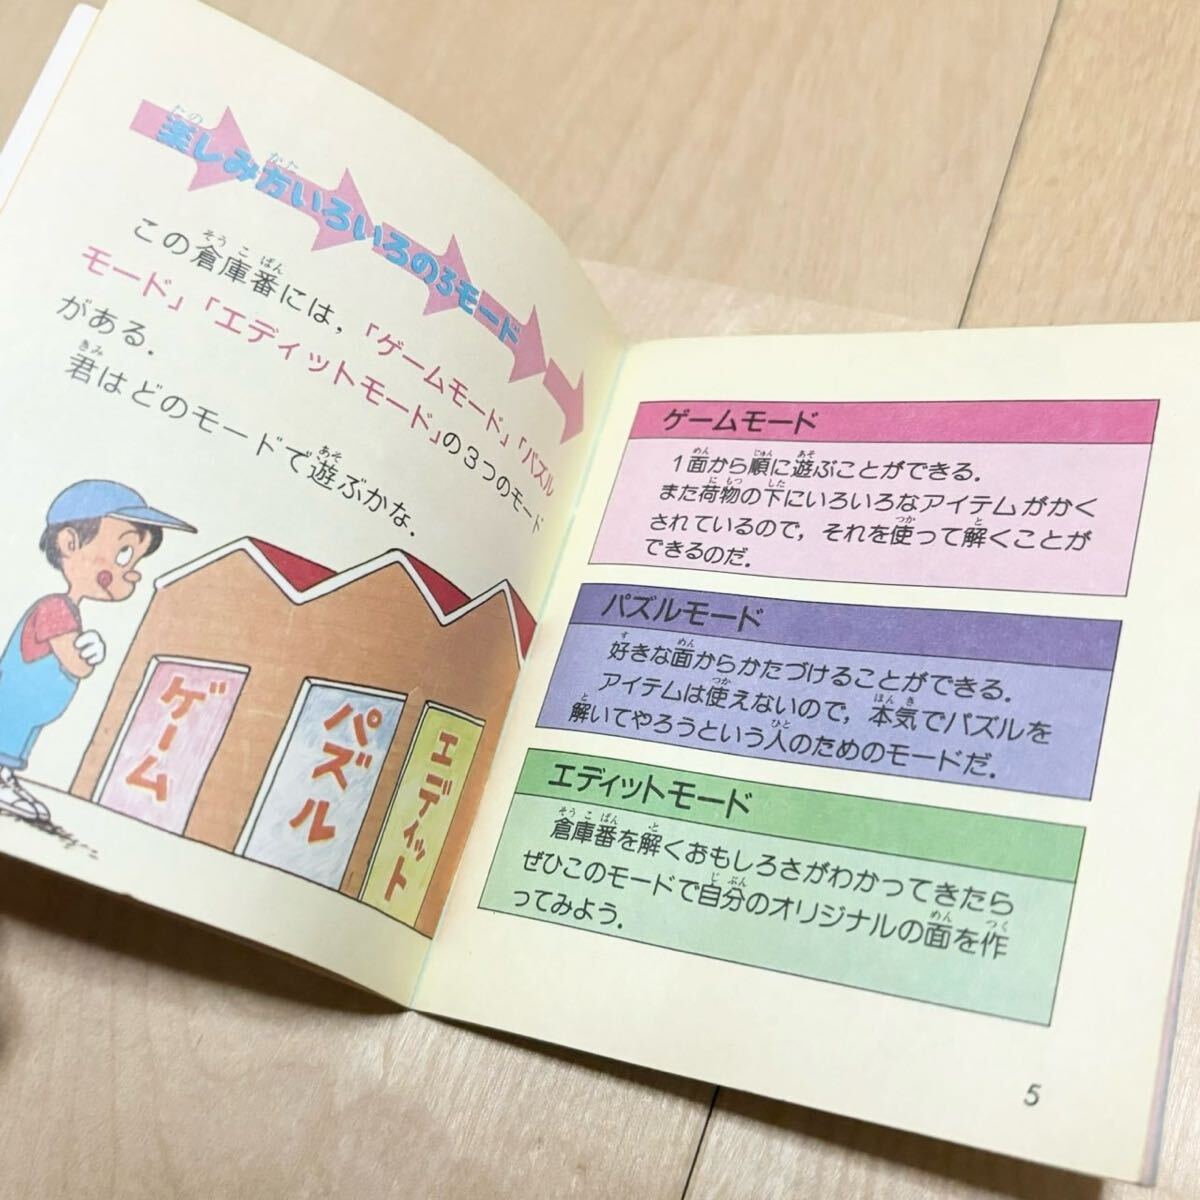 楽しみ方いろいろの3モード
この倉庫番には，「ゲームモード」「パズル
モード」「エディットモード」の3つのモード
がある．
君はどのモードで遊ぶかな．
ゲーム
パズル
エディット
ゲームモード
1面から順に遊ぶことができる．
また荷物の下にいろいろなアイテムがかく
されているので，それを使って解くことが
できるのだ．
パズルモード
好きな面からかたづけることができる．
アイテムは使えないので，本気でパズルを
解いてやろうという人のためのモードだ．
エディットモード
倉庫番を解くおもしろさがわかってきたら
ぜひこのモードで自分のオリジナルの面を作
ってみよう．
5